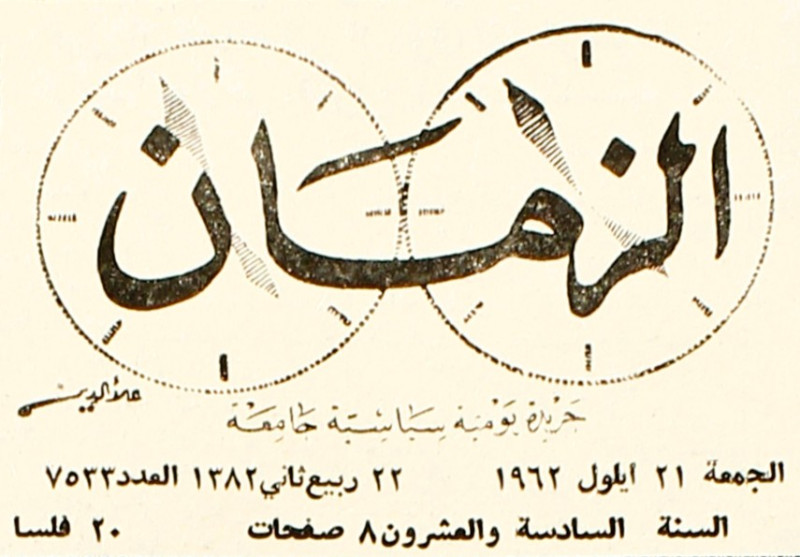 الزمان
علاء الدين
جريدة يومية سياسية جامعة
الجمعة ٢١ أيلول ١٩٦٢ ٢٢ ربيع ثاني ١٣٨٢ العدد ٧٥٣٣
السنة السادسة والعشرون ٨ صفحات ٢٠ فلسا